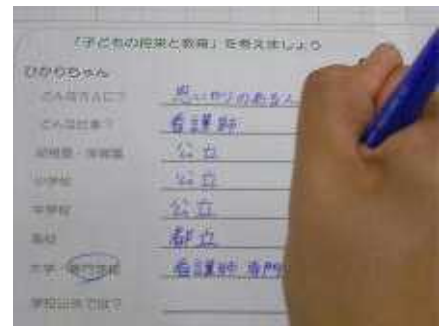 「子どもの将来と教育」を考えましょう
ひかりちゃん
どんな大人に? 思いやりのある人
どんな仕事? 看護師
幼稚園・保育園 公立
小学校 公立
中学校 公立
高校 都立
大学・専門学校 看護師 専門
学校以外では?